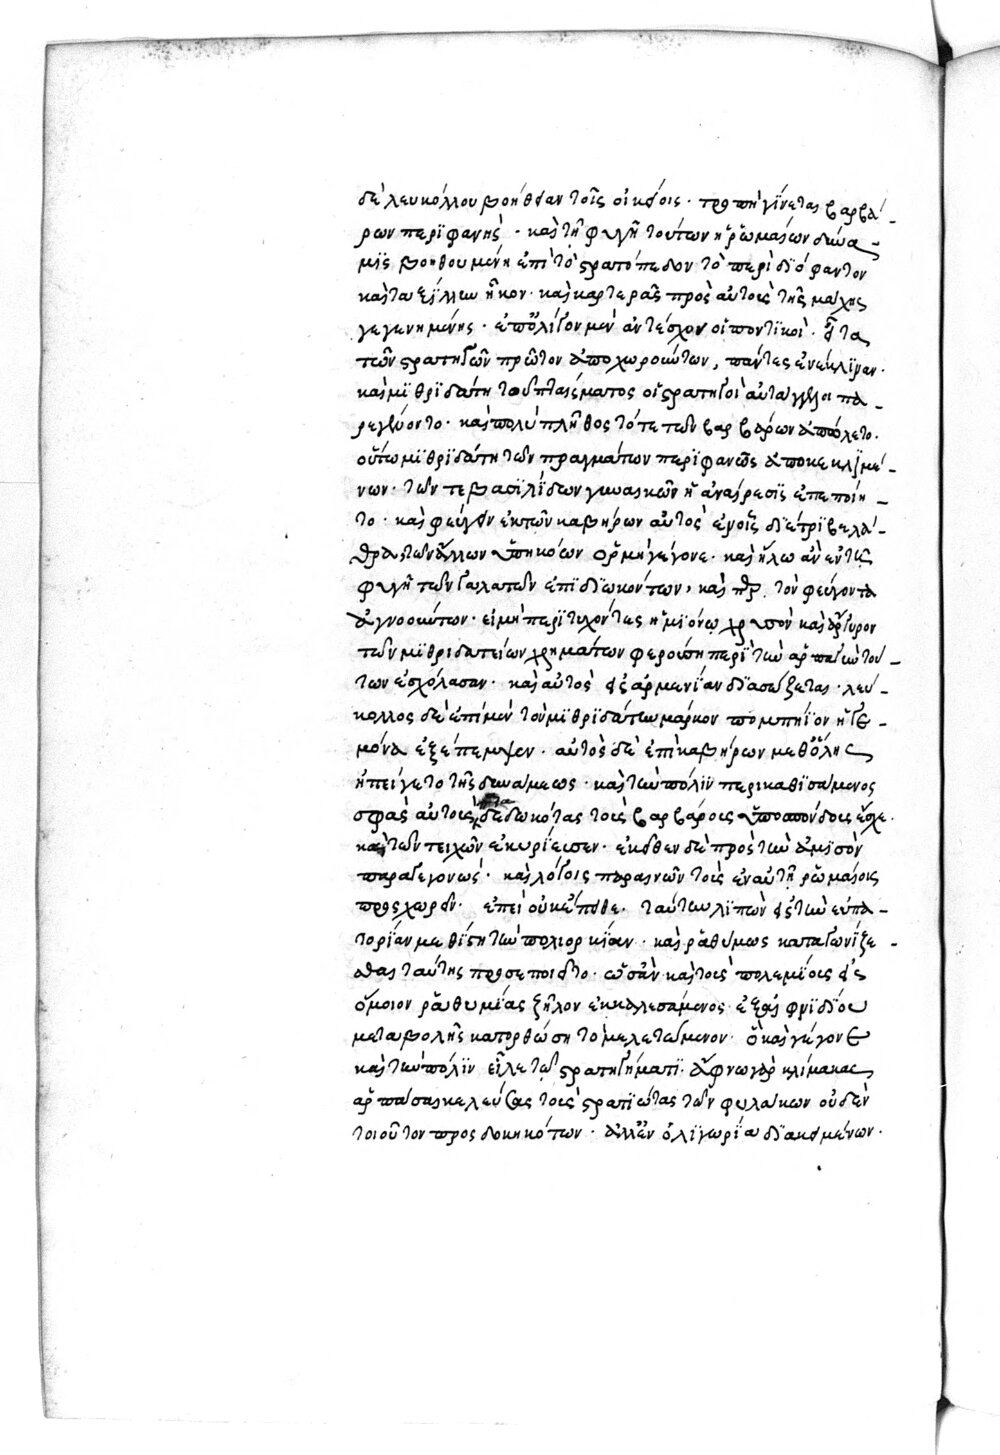 δὲ λευκόλλου βοήθειαν τοῖς οἰκείοις · τροπὴ γίνεται βαρβά-
ρων περιφανής · καὶ τῇ φυγῇ τούτων ἡ ῥωμαίων δύνα-
μις βοηθουμένη ἐπὶ τὸ στρατόπεδον τὸ περὶ διόφαντον
καὶ ταξίλλην ἧκον · καὶ καρτερᾶς πρὸς αὐτοὺς τῆς μάχης
γεγενημένης · ἐπ' ὀλίγον μὲν ἀντέσχον οἱ ποντικοί · εἶτα
τῶν στρατηγῶν πρῶτον ἀποχωρούντων, πάντες ἐνέκλιναν ·
καὶ μιθριδάτῃ τοῦ πταίσματος οἱ στρατηγοὶ αὐτάγγελοι πα-
ρεγένοντο · καὶ πολὺ πλῆθος τότε τῶν βαρβάρων ἀπώλετο ·
οὕτω μιθριδάτῃ τῶν πραγμάτων περιφανῶς ἀποκεκλιμέ-
νων · τῶν τε βασιλίδων γυναικῶν ἡ ἀναίρεσις ἐπεποίη-
το · καὶ φεύγειν ἐκ τῶν καβήρων αὐτὸς ἐν οἷς διέτριβε λά-
θρα τῶν ἄλλων ὑπηκόων ὅρμη γέγονε · καὶ ἥλω ἂν ἐν τῇ
φυγῇ τῶν γαλατῶν ἐπιδιωκόντων, καὶ περ τὸν φεύγοντα
ἀγνοούντων · εἰ μὴ περιτυχόντες ἡμιόνῳ χρυσὸν καὶ ἄργυρον
τῶν μιθριδατείων χρημάτων φερούσῃ περὶ τὴν ἁρπαγὴν τού-
των ἐσχόλασαν · καὶ αὐτὸς εἰς ἀρμενίαν διασώζεται · λεύ-
κολλος δὲ ἐπὶ μὲν τὸν μιθριδάτην μάρκον πομπήϊον ἡγε-
μόνα ἐξέπεμψεν · αὐτὸς δὲ ἐπὶ καβήρων μεθ' ὅλης
ἠπείγετο τῆς δυνάμεως · καὶ τὴν πόλιν περικαθισάμενος
σφᾶς αὐτοὺς δεδωκότας τοὺς βαρβάρους ὑποσπόνδους ἔσχε ·
καὶ τῶν τειχῶν ἐκυρίευσεν · ἐκεῖθεν δὲ πρὸς τὴν ἀμισὸν
παραγεγονώς · καὶ λόγοις παραινῶν τοὺς ἐν αὐτῇ ῥωμαίοις
προσχωρεῖν · ἐπεὶ οὐκ ἔπειθε · ταύτην λιπὼν εἰς τὴν εὐπα-
τορίαν μεθίστη τὴν πολιορκίαν · καὶ ῥαθύμως καταγωνίζε-
σθαι ταύτης προσεποιεῖτο · ὡς ἂν καὶ τοὺς πολεμίους εἰς
ὅμοιον ῥαθυμίας ζῆλον ἐκκαλεσάμενος ἐξ αἰφνιδίου
μεταβολῆς κατορθώσῃ τὸ μελετώμενον · ὃ καὶ γέγονε
καὶ τὴν πόλιν εἷλε τῷ στρατηγήματι · ἄφνω γὰρ κλίμακας
ἁρπάσαι κελεύσας τοὺς στρατιώτας τῶν φυλάκων οὐδὲν
τοιοῦτον προσδοκηκότων · ἀλλ' ἐν ὀλιγωρίᾳ διακειμένων ·